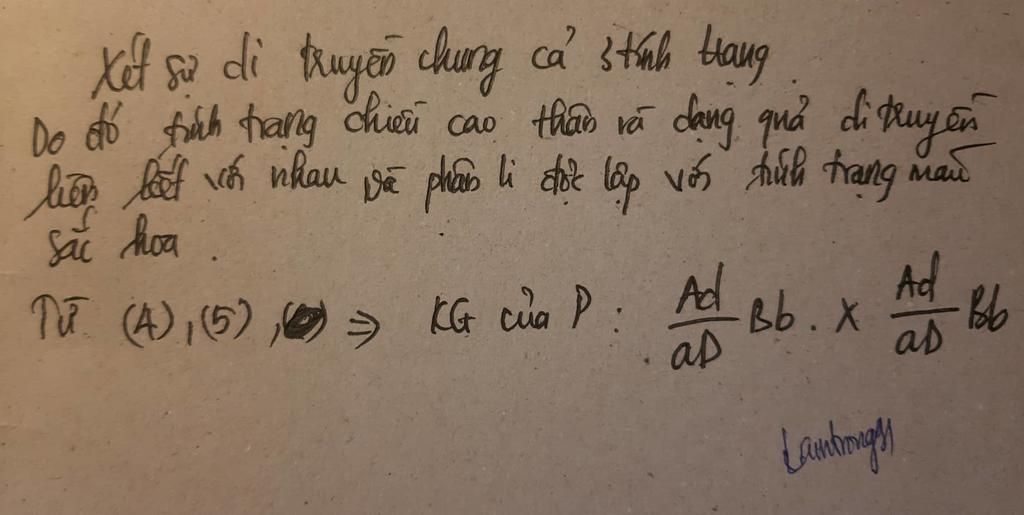 Xét sự di truyền chung cả 3 tính trạng.
Do đó tính trạng chiều cao thân và dạng quả di truyền
liên kết với nhau và phân li độc lập với tính trạng màu
sắc hoa.
Từ (4), (5), => KG của P: Ad/aD Bb. x Ad/aD Bb
Lamtrong91